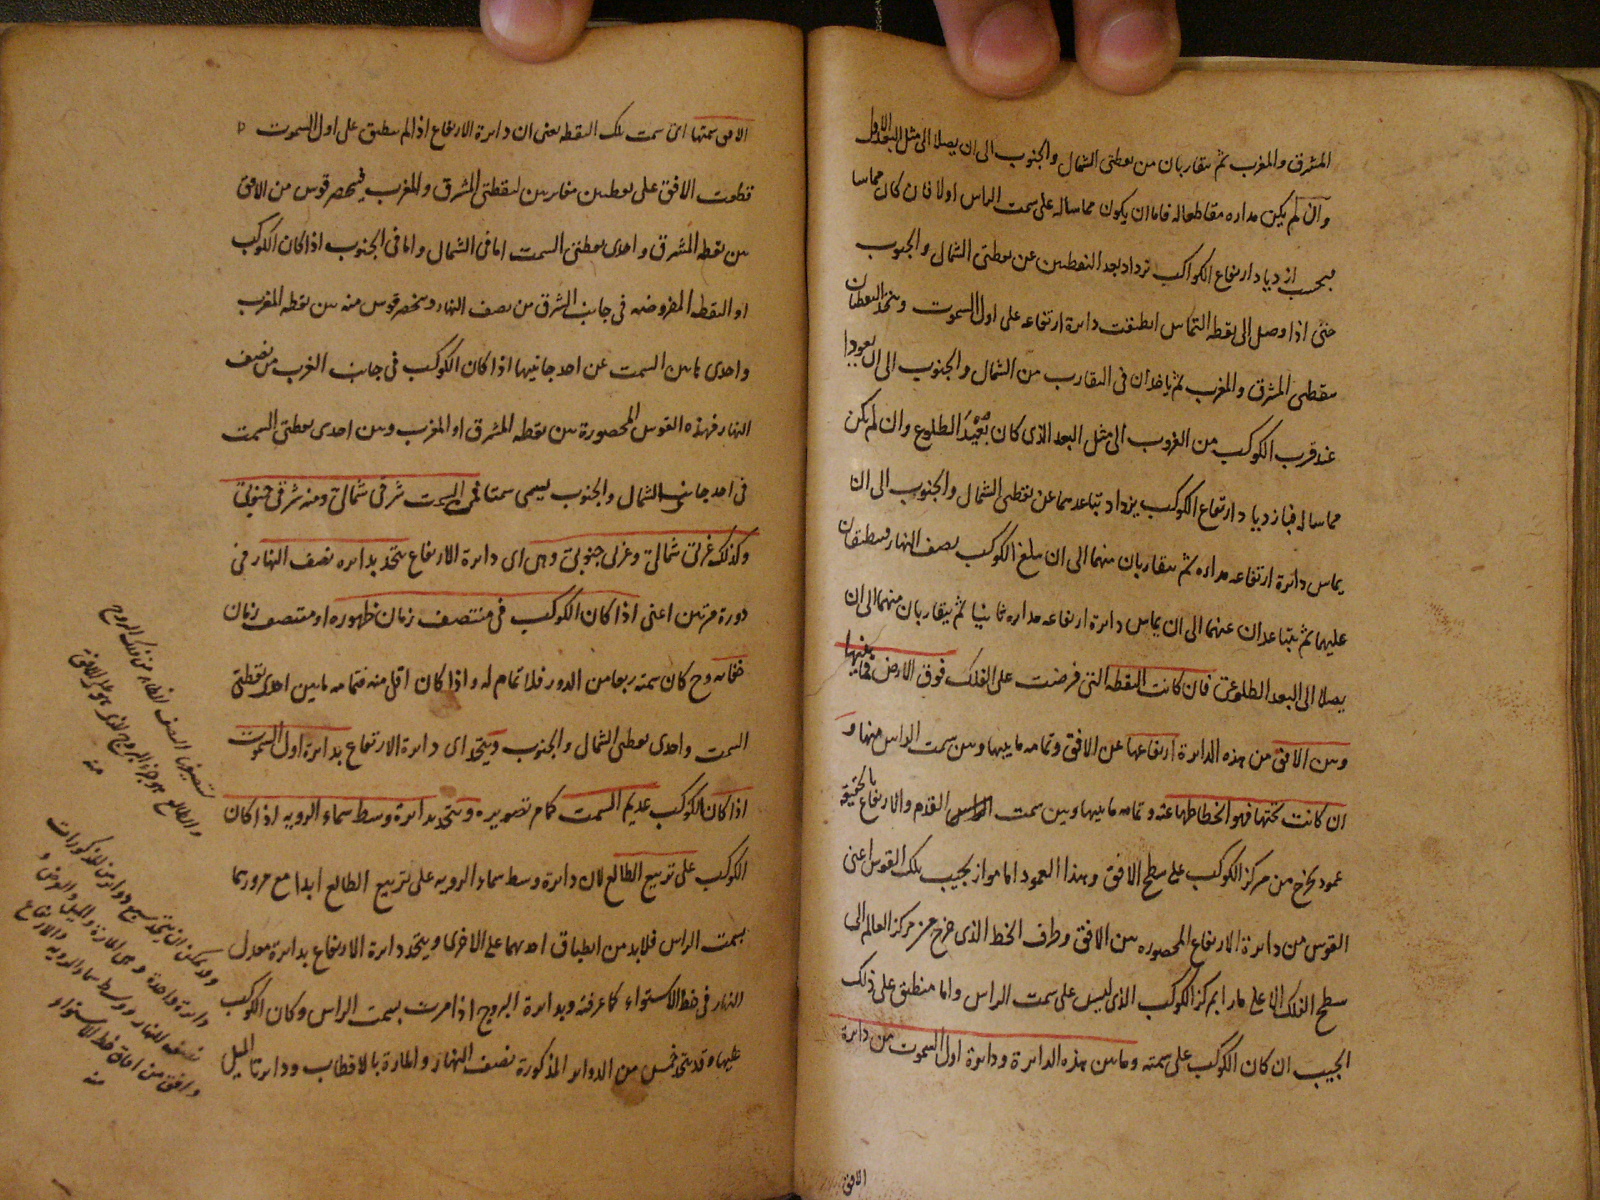 المشرق والمغرب ثم يتقاربان من نقطتى الشمال والجنوب الى ان يصلا الى مثل البعد الاول
وان لم يكن مداره مقاطعا له فاما ان يكون مماسا له على سمت الراس اولا فان كان مماسا
فبحسب ازدياد ارتفاع الكواكب تزداد بعد النقطتين عن نقطتى الشمال والجنوب
حتى اذا وصل الى نقطة التماس انطبقت دائرة ارتفاعه على اول السموت ويتحد النقطتان
بنقطتى المشرق والمغرب ثم ياخذان فى التقارب من الشمال والجنوب الى ان يعودا
عند قرب الكوكب من الغروب الى مثل البعد الذى كان بعيد الطلوع وان لم يكن
مماسا له فبازدياد ارتفاع الكوكب يزداد تباعدهما عن نقطتى الشمال والجنوب الى ان
يماس دائرة ارتفاعه مداره ثم يتقاربان منهما الى ان يبلغ الكوكب نصف النهار فينطبقان
عليهما ثم يتباعدان عنهما الى ان يماس دائرة ارتفاعه مداره ثانيا ثم يتقاربان منهما الى ان
يصلا الى البعد الطلوعى فان كانت النقطة التى فرضت على الفلك فوق الارض فما بينها
وبين الافق من هذه الدائرة ارتفاعها عن الافق وتمامه ما بينها وبين سمت الراس منها و
ان كانت تحتها فهو انحطاطها عنه وتمامه ما بينها وبين سمت القدم والارتفاع بالحقيقة
عمود يخرج من مركز الكوكب على سطح الافق وهذا العمود اما مواز لجيب تلك القوس اعنى
القوس من دائرة الارتفاع المحصورة بين الافق وطرف الخط الذى خرج عن مركز العالم الى
سطح الفلك الاعلى مارا بمركز الكوكب الذى ليس على سمت الراس واما منطبق على ذلك
الجيب ان كان الكوكب على سمته وما بين هذه الدائرة ودائرة اول السموت من دائرة
الافق
الافق سمتها اى سمت تلك النقطة يعنى ان دائرة الارتفاع اذا لم ينطبق على اول السموت
قطعت الافق على نقطتين مغايرتين لنقطتى المشرق والمغرب فينحصر قوس من الافق
بين نقطة المشرق واحدى نقطتى السمت اما فى الشمال واما فى الجنوب اذا كان الكوكب
او النقطة المفروضة فى جانب الشرق من نصف النهار وينحصر قوس منه بين نقطة المغرب
واحدى السمت عن احد جانبيها اذا كان الكوكب فى جانب الغرب من نصف
النهار فهذه القوس المحصورة بين نقطة المشرق او المغرب وبين احدى نقطتى السمت
فى احد جانبى الشمال والجنوب يسمى سمتا فمن السمت شرقى شمالى ومنه شرقى جنوبى
وكذلك غربى شمالى وغربى جنوبى وهى اى دائرة الارتفاع يتحد بدائرة نصف النهار فى
دورة مرتين اعنى اذا كان الكوكب فى منتصف زمان ظهوره او منتصف زمان
خفائه وح كان سمته ربعا من الدور فلا تمام له واذا كان اقل منه فتمامه ما بين احدى نقطتى
السمت واحدى نقطتى الشمال والجنوب ويتحد اى دائرة الارتفاع بدائرة اول السموت
اذا كان الكوكب عديم السمت كما مر تصويره ويتحد بدائرة وسط سماء الرويه اذا كان
الكوكب على تربيع الطالع لان دائرة وسط سماء الرويه على تربيع الطالع ابدا مع مرورهما
بسمت الراس فلابد من انطباق احديهما على الاخرى ويتحد دائرة الارتفاع بدائرة معدل
النهار فى خط الاستواء كما عرفته وبدائرة البروج اذا مرت بسمت الراس وكان الكوكب
عليها وقد يتحد خمس من الدوائر المذكورة نصف النهار والمارة بالاقطاب ودائرتا الميل
والطالع هو جزء البروج الذى هو على الافق
منه
وقد يمكن ان يتحد سبع دوائر من المذكورات
دائرة واحدة وهى المارة والميل والعرض و
نصف النهار ووسط سماء الرويه والارتفاع
وافق من افاق خط الاستواء
منه